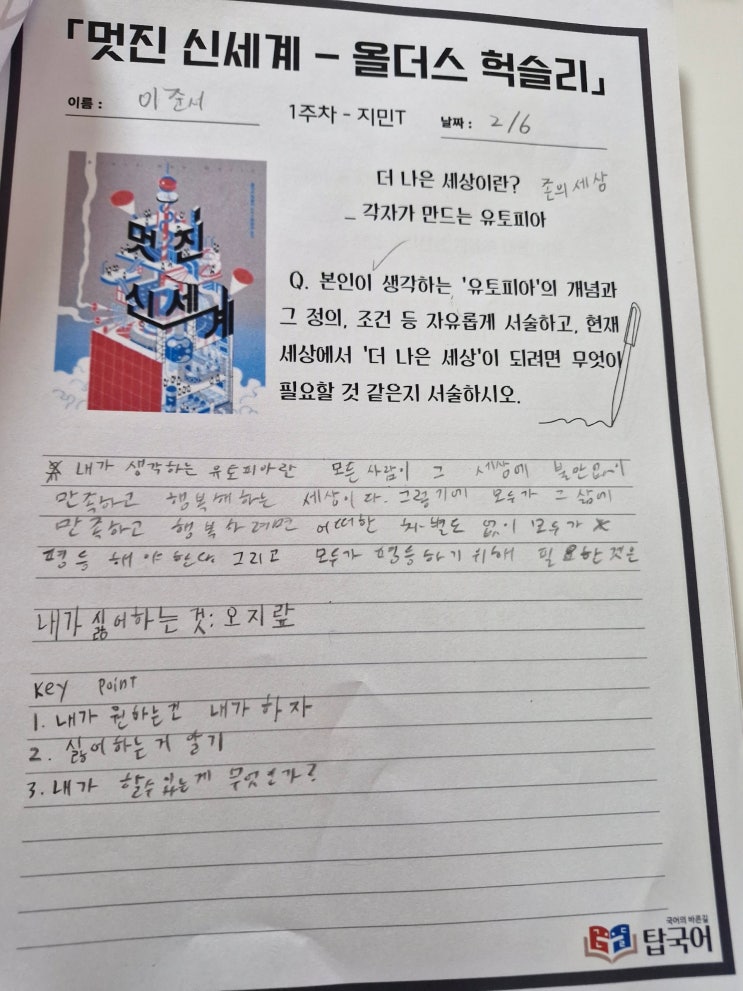 「멋진 신세계 – 올더스 헉슬리」
이름 : 이준서
1주차 - 지민T
날짜 : 2/6
멋진
신세계
더 나은 세상이란? 존의 세상
_ 각자가 만드는 유토피아
Q. 본인이 생각하는 '유토피아'의 개념과
그 정의, 조건 등 자유롭게 서술하고, 현재
세상에서 '더 나은 세상'이 되려면 무엇이
필요할 것 같은지 서술하시오.
내가 생각하는 유토피아란 모든 사람이 그 세상에 불만없이
만족하고 행복해 하는 세상이다. 그렇기에 모두가 그 삶에
만족하고 행복하려면 어떠한 차별도 없이 모두가
평등 해야 한다. 그리고 모두가 평등하기 위해 필요한 것은
내가 싫어하는 것: 오지랖
key point
1. 내가 원하는건 내가 하자
2. 싫어하는거 알기
3. 내가 할수있는게 무엇인가?
국어의 바른길
탑국어